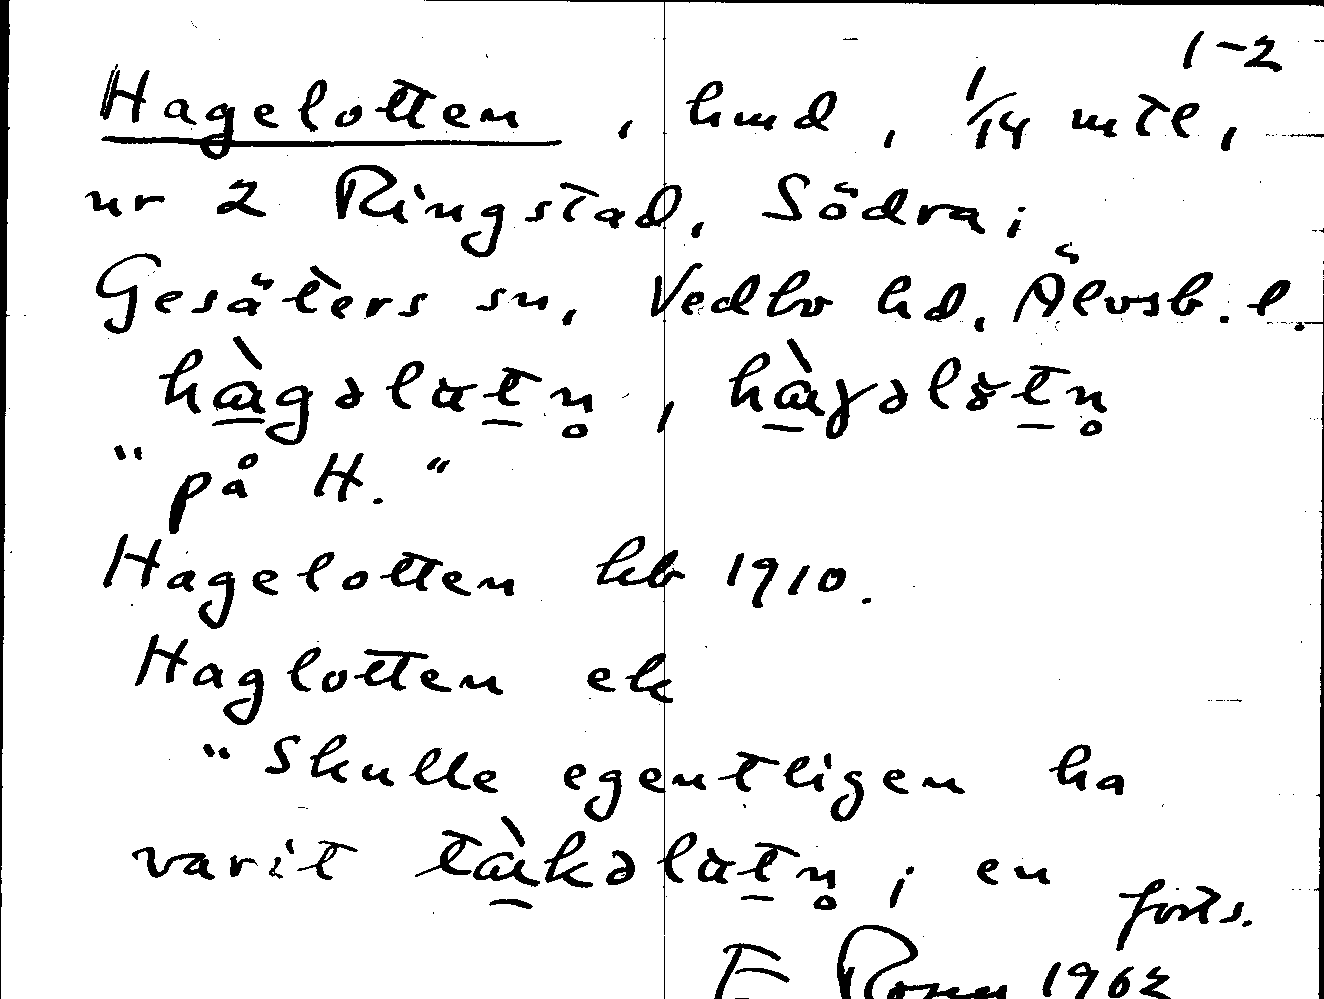 1-2
Hagelotten, hmd, 1/14 mtl,
nr 2 Ringstad, Södra i
Gesäters sn, Vedbo hd, Älvsb. l.
hà̱gəlɑt̲n̥, hà̱ɣəlɔt̲n̥
"på H."
Hagelotten kb 1910.
Haglotten ek
"Skulle egentligen ha
varit tà̱kəlɑt̲n̥; en
forts.
E 1962